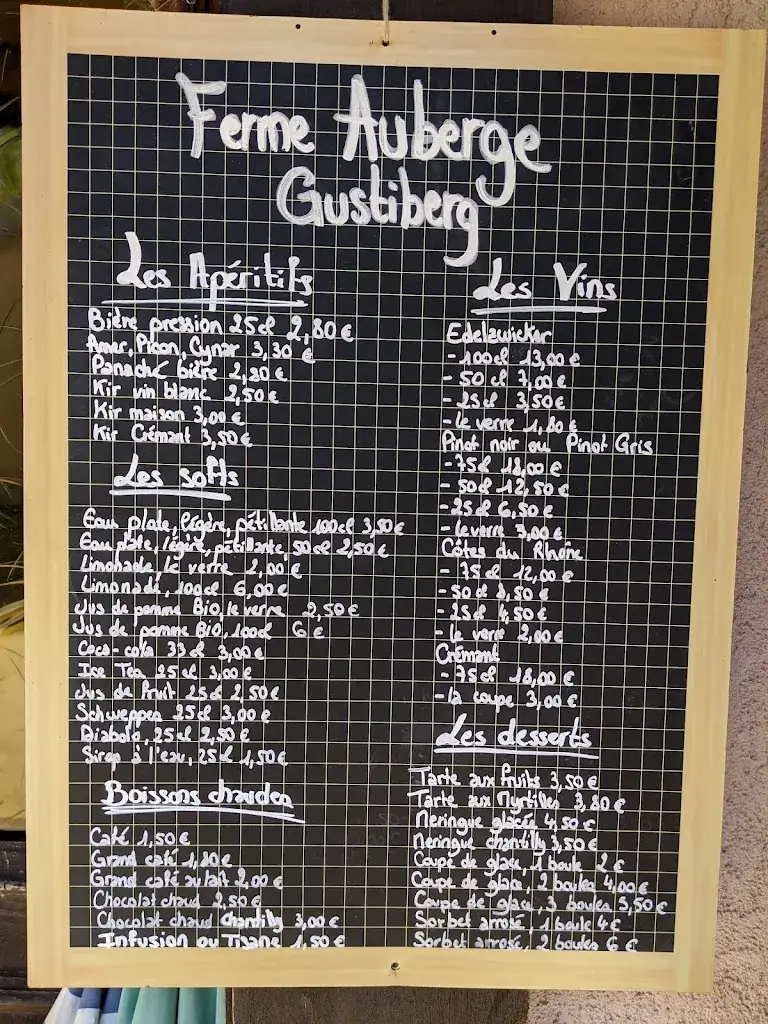 Ferme Auberge
Gustiberg
Les Apéritifs
Bière pression 25cl 2,80€
Amer, Picon, Cynar 3,30€
Panaché bière 2,80€
Kir vin blanc 2,50€
Kir maison 3,00€
Kir Crémant 3,50€
Les softs
Eau plate, légère, pétillante 100cl 3,50€
Eau plate, légère, pétillante, 50cl 2,50€
Limonade le verre 2,00€
Limonade, 100cl 6,00€
Jus de pomme Bio, le verre 2,50€
Jus de pomme Bio, 100cl 6€
Coca-cola 33cl 3,00€
Ice Tea 25cl 3,00€
Jus de Fruit 25cl 2,50€
Schweppes 25cl 3,00€
Diabolo, 25cl 2,50€
Sirop à l'eau, 25cl 1,50€
Boissons chaudes
Café 1,50€
Grand café 1,80€
Grand café au lait 2,00€
Chocolat chaud 2,50€
Chocolat chaud chantilly 3,00€
Infusion ou Tisane 1,50€
Les Vins
Edelzwicker
- 100cl 13,00€
- 50cl 7,00€
- 25cl 3,50€
- le verre 1,80€
Pinot noir ou Pinot Gris
- 75cl 18,00€
- 50cl 12,50€
- 25cl 6,50€
- le verre 3,00€
Côtes du Rhône
- 75cl 12,00€
- 50cl 8,50€
- 25cl 4,50€
- le verre 2,00€
Crémant
- 75cl 18,00€
- la coupe 3,00€
Les desserts
Tarte aux fruits 3,50€
Tarte aux Myrtilles 3,80€
Meringue glacée 4,50€
Meringue chantilly 3,50€
Coupe de glace, 1 boule 2€
Coupe de glace, 2 boules 4,00€
Coupe de glace, 3 boules 5,50€
Sorbet arrosé, 1 boule 4€
Sorbet arrosé, 2 boules 6€